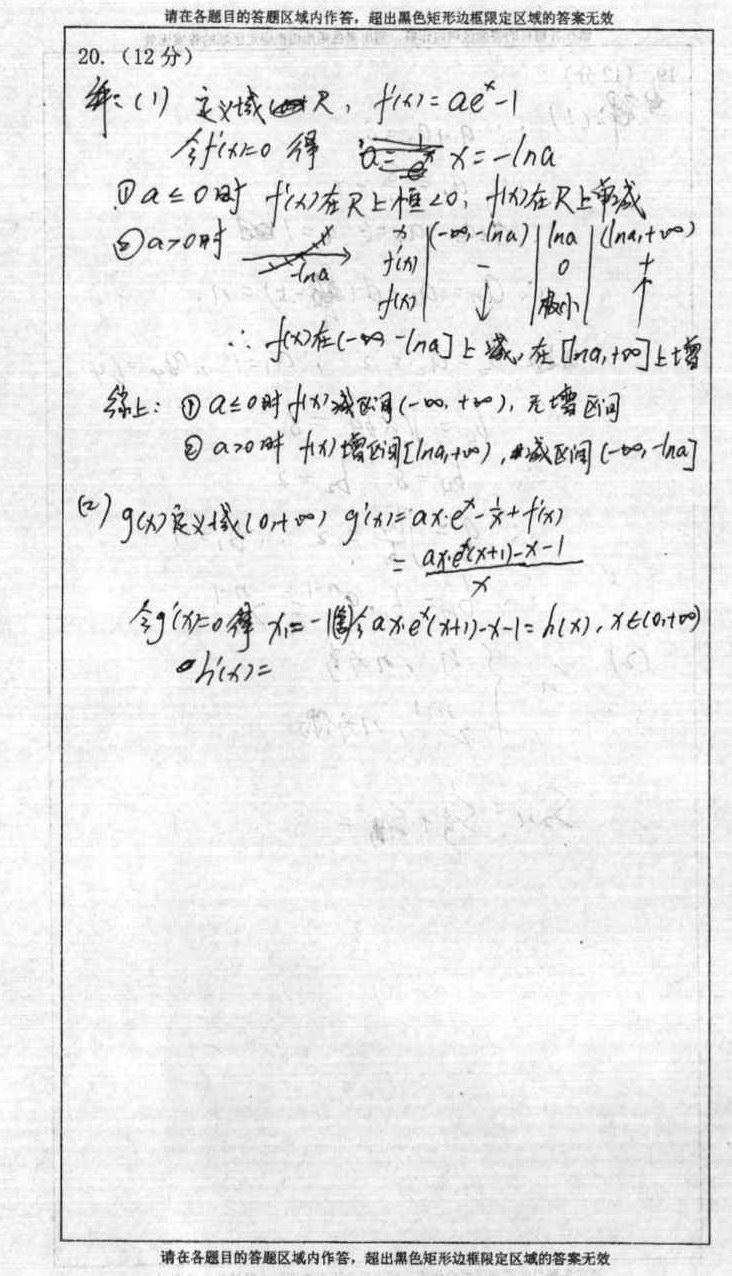 请在各题目的答题区域内作答，超出黑色矩形边框限定区域的答案无效
20.（12分）
解：(1) 定义域 R，f'(x)=ae^x-1
令f'(x)=0 得 x=-lna
①a≤0时 f'(x)在R上恒<0，f(x)在R上单减
②a>0时 -lna x | (-∞,-lna) | lna | (lna,+∞)
f'(x) | - | 0 | +
f(x) | ↓ | 极小 | ↑
∴ f(x)在(-∞,-lna]上减，在[lna,+∞]上增
综上：①a≤0时f(x)减区间(-∞,+∞)，无增区间
②a>0时 f(x)增区间[lna,+∞)，减区间(-∞,-lna]
(2) g(x)定义域(0,+∞) g'(x)=ax·e^x-1/x+f'(x)
=(ax·e^x(x+1)-x-1)/x
令g'(x)=0得 x₁=-1 令ax·e^x(x+1)-x-1=h(x)，x∈(0,+∞)
h'(x)=
请在各题目的答题区域内作答，超出黑色矩形边框限定区域的答案无效